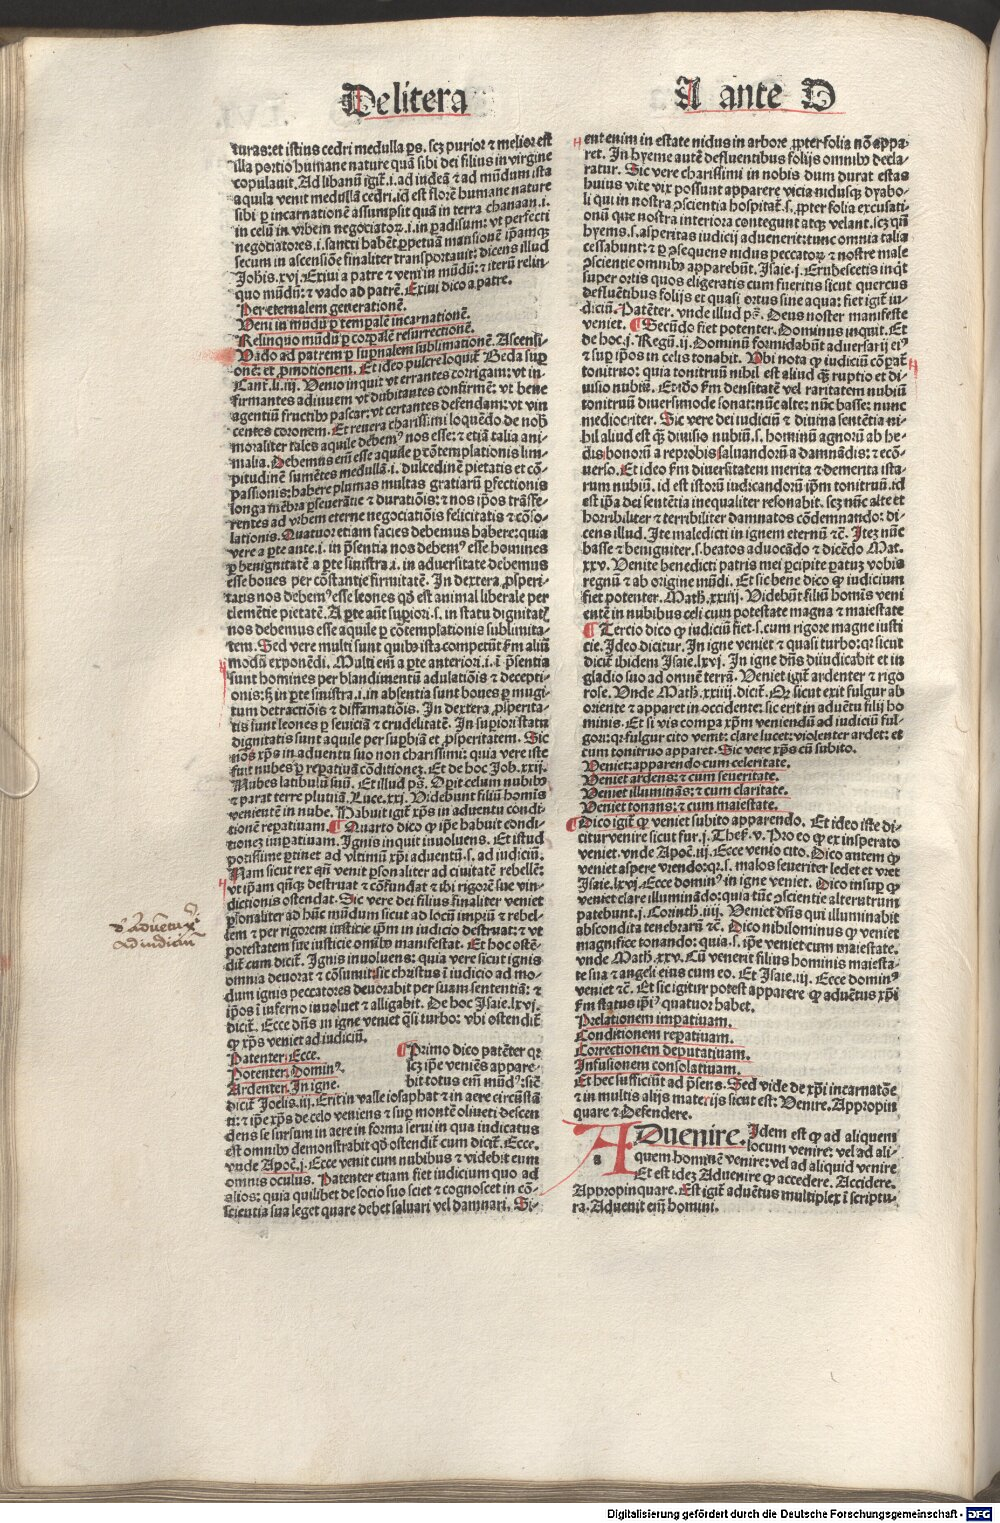 De litera
A ante D
turas: et istius cedri medulla ꝑs. scꝫ purior ⁊ melior est
illa portio humane nature quā sibi dei filius in virgine
copulauit. Ad libanū igit̄.i.ad iudeā ⁊ ad mūdum ista
aquila venit medullā cedri, id est florē humane nature
sibi ꝑ incarnationē assumpsit quā in terra chanaan.i.
in celū in vrbem negociatoꝝ.i.in ꝑadisum: vt perfecti
negociatores.i.sancti habēt ꝑpetuā mansionē ip̄amqꝫ
secum in ascensiōe finaliter transportauit: dicens illud
Johis.xvj. Exiui a patre ⁊ veni in mūdū: ⁊ iterū relin-
quo mūdū: ⁊ vado ad patrē. Exiui dico a patre.
Per eternalem generationē.
Veni in mūdū ꝑ temꝑalē incarnationē.
Relinquo mūdū ꝑ corꝑalē resurrectionē.
Vado ad patrem ꝑ suꝑnalem sublimationē. Ascensi-
onē: et ꝓmotionem. Et ideo pulcre loquit̄ Beda suꝑ
Cant.li.iij. Venio inquit vt errantes corrigam: vt in-
firmantes adiuuem vt dubitantes confirmē: vt bene
agentiū fructibꝰ pascar: vt certantes defendam: vt vin
centes coronem. Et reuera charissimi loquēdo de nob̄
moraliter tales aquile debemꝰ nos esse: ⁊ etiā talia ani-
malia. Debemus em̄ esse aquile ꝑ cōtemplationis lim-
pitudinē sumētes medullā.i. dulcedinē pietatis et cō-
passionis: habere plumas multas gratiarū ꝑfectionis
longa mēbra ꝑseuerātie ⁊ durationis: ⁊ nos ip̄os trāsfe-
rentes ad vrbem eterne negociatiōis felicitatis ⁊ cōso-
lationis. Quatuor etiam facies debemus habere: quia
vere a ꝑte ante.i. in p̄sentia nos debemꝰ esse homines
ꝑ benignitatē a ꝑte sinistra.i. in aduersitate debemus
esse boues per cōstantie firmitatē. In dextera ꝓsperi-
taris nos debemꝰ esse leones qd̄ est animal liberale per
clemētie pietatē. A ꝑte aūt suꝑiori.s. in statu dignitatꝭ
nos debemus esse aquile ꝑ cōtemplationis sublimita-
tem. Sed vere multi sunt quibꝰ ista competūt s̄m aliū
modū exponēdi. Multi em̄ a ꝑte anteriori.i. ī p̄sentia
sunt homines per blandimentū adulatiōis ⁊ decepti-
onis: sꝫ in ꝑte sinistra.i. in absentia sunt boues ꝑ mugi
tum detractiōis ⁊ diffamatiōis. In dextera ꝓsperita-
tis sunt leones ꝑ seuiciā ⁊ crudelitatē. In suꝑiori statu
dignitatis sunt aquile per suꝑbiā et ꝓsperitatem. Sic
nos xp̄s in aduentu suo non charissimi: quia vere iste
fuit nubes ꝑ reꝑatiuā cōditionez. Et de hoc Joh.xxij.
Nubes latibulū suū. Et illud ps̄. Opit celum nubibꝰ
⁊ parat terre pluuiā. Luce.xxj. Videbunt filiū homīs
venientē in nube. Habuit igit̄ xp̄s in aduentu condi-
tionē reꝑatiuam. ¶ Quarto dico ꝙ ip̄e habuit condi-
tionez imꝑatiuam. Ignis inquit inuoluens. Et istud
potissime ꝑtinet ad vltimū xp̄i aduentū.s. ad iudiciū.
Nam sicut rex qn̄ venit ꝑsonaliter ad ciuitatē rebellē:
vt ip̄am qn̄qꝫ destruat ⁊ cōfundat ⁊ ibi rigorē sue vin-
dictionis ostendat. Sic vere dei filius finaliter veniet
ꝑsonaliter ad hūc mūdum sicut ad locū impiū ⁊ rebel-
lem ⁊ per rigorem iusticie ip̄m in iudicio destruat: ⁊ vt
potestatem sue iusticie omibꝰ manifestat. Et hoc ostē-
dit̄ cum dicit̄. Ignis inuoluens: quia vere sicut ignis
omnia deuorat ⁊ cōsumit: sic christus ī iudicio ad mo-
dum ignis peccatores deuorabit per suam sententiā: ⁊
ip̄os ī inferno inuoluet ⁊ alligabit. De hoc Isaie.lxvj.
dicit̄. Ecce dn̄s in igne veniet q̄si turbo: vbi ostendit̄
ꝙ xp̄s veniet ad iudiciū.
Patenter, Ecce.
Potenter, Dominꝰ.
Ardenter. In igne.
¶ Primo dico patēter qꝛ
scꝫ ip̄e veniēs appare-
bit totus em̄ mūdꝰ: sic
dicit̄ Joelis.iij. Erit in valle iosaphat ⁊ in aere circūstā
ti: ⁊ ip̄e xp̄s de celo veniens ⁊ suꝑ montē oliueti descen
dens se sursum in aere in forma serui in qua iudicatus
est omibꝰ demonstrabit qd̄ ostendit̄ cum dicit̄. Ecce.
vnde Apoc̄.j. Ecce venit cum nubibus ⁊ videbit eum
omnis oculus. Patenter etiam fiet iudicium quo ad
alios: quia quilibet de socio suo sciet ⁊ cognoscet in cō-
scientia sua leget quare debet saluari vel damnari. Si-
v̄ aduentꝰ xi
ad iudiciū
ent enim in estate nidus in arbore ꝓpter folia nō appa-
ret. In hyeme autē defluentibus folijs omnibꝰ decla-
ratur. Sic vere charissimi in nobis dum durat estas
huius vite vix possunt apparere vicia nidusqꝫ dyabo-
li qui in nostra ꝯscientia hospitat̄.s. ꝓpter folia excusati-
onū que nostra interiora contegunt atqꝫ velant. scꝫ qn̄
hyems.s. asperitas iudicij aduenerit: tunc omnia talia
cessabunt: ⁊ ꝑ ꝯsequens nidus peccatoꝝ ⁊ nostre male
ꝯscientie omnibꝰ apparebūt. Isaie.j. Erubescetis inq̄t
super ortis quos eligeratis cum fueritis sicut quercus
defluētibus folijs et quasi ortus sine aqua: fiet igit̄ iu-
dicium. Patēter. vnde illud ps̄. Deus noster manifeste
veniet. ¶ Secūdo fiet potenter. Dominus inquit. Et
de hoc.j. Regū.ij. Dominū formidabūt aduersarij eiꝰ
⁊ suꝑ ip̄os in celis tonabit. Vbi nota ꝙ iudiciū cōꝑat̄
tonitruo: quia tonitruū nihil est aliud qꝫ ruptio et di-
uisio nubiū. Et ideo s̄m densitatē vel raritatem nubiū
tonitruū diuersimode sonat: nūc alte: nūc basse: nunc
mediocriter. Sic vere dei iudiciū ⁊ diuina sentētia ni-
hil aliud est qꝫ diuisio nubiū.s. hominū agnorū ab he-
dis: bonorū a reprobis: saluandorū a damnādis: ⁊ ecō-
uerso. Et ideo s̄m diuersitatem merita ⁊ demerita ista-
rum nubiū. id est istorū iudicandorū ip̄m tonitruū.id
est ip̄a dei sentētia inequaliter resonabit. scꝫ nūc alte et
horribiliter ⁊ terribiliter damnatos cōdemnando: di-
cens illud. Ite maledicti in ignem eternū ⁊c̄. Itez nūc
basse ⁊ benigniter.s. beatos aduocādo ⁊ dicēdo Mat.
xxv. Venite benedicti patris mei ꝑcipite ꝑatuꝫ vobis
regnū ⁊ ab origine mūdi. Et sic bene dico ꝙ iudicium
fiet potenter. Math̄.xxiiij. Videbūt filiū homīs veni
entē in nubibus celi cum potestate magna ⁊ maiestate
¶ Tercio dico ꝙ iudiciū fiet.s. cum rigore magne iusti
cie. Ideo dicitur. In igne veniet ⁊ quasi turbo: qꝛ sicut
dicit̄ ibidem Isaie.lxvj. In igne dn̄s diiudicabit et in
gladio suo ad omnē terrā. Veniet igit̄ ardenter ⁊ rigo
rose. Vnde Math̄.xxiiij. dicit̄. Qꝛ sicut exit fulgur ab
oriente ⁊ apparet in occidente: sic erit in aduētu filij ho
minis. Et si vis compara xp̄m veniendū ad iudiciū ful-
gori: qꝛ fulgur cito venit: clare lucet: violenter ardet: et
cum tonitruo apparet. Sic vere xp̄s cū subito.
Veniet: apparendo cum celeritate.
Veniet ardens: ⁊ cum seueritate.
Veniet illuminās: ⁊ cum claritate.
Veniet tonans: ⁊ cum maiestate.
¶ Dico igit̄ ꝙ veniet subito apparendo. Et ideo iste di-
citur venire sicut fur.j. Thes̄.v. Pro eo ꝙ ex insperato
veniet. vnde Apoc̄.iij. Ecce venio cito. Dico antem ꝙ
veniet aspere vrendo: qꝛ.s. malos seueriter ledet et vret
Isaie.lxvj. Ecce dominꝰ in igne veniet. Dico insuꝑ ꝙ
veniet clare illuminādo: quia tūc ꝯscientie alterutrum
patebunt.j. Corinth̄.iiij. Veniet dn̄s qui illuminabit
abscondita tenebrarū ⁊c̄. Dico nihilominus ꝙ veniet
magnifice tonando: quia.s. ip̄e veniet cum maiestate.
vnde Math̄.xxv. Cū venerit filius hominis maiesta-
te sua ⁊ angeli eius cum eo. Et Isaie.iij. Ecce dominꝰ
veniet ⁊c̄. Et sic igitur potest apparere ꝙ aduētus xp̄i
s̄m status ip̄iꝰ quatuor habet.
Prelationem imꝑatiuam.
Conditionem reꝑatiuam.
Correctionem deputatiuam.
Infusionem consolatiuam.
Et hec sufficiūt ad p̄sens. Sed vide de xp̄i incarnatōe
⁊ in multis alijs materijs sicut est: Venire. Appropin
quare ⁊ Defendere.
ADuenire. Idem est ꝙ ad aliquem
locum venire: vel ad ali-
quem hominē venire: vel ad aliquid venire
a
Et est idez Aduenire ꝙ accedere. Accidere.
Appropinquare. Est igit̄ aduētus multiplex ī scriptu-
ra. Aduenit em̄ homini.
Digitalisierung gefördert durch die Deutsche Forschungsgemeinschaft - DFG